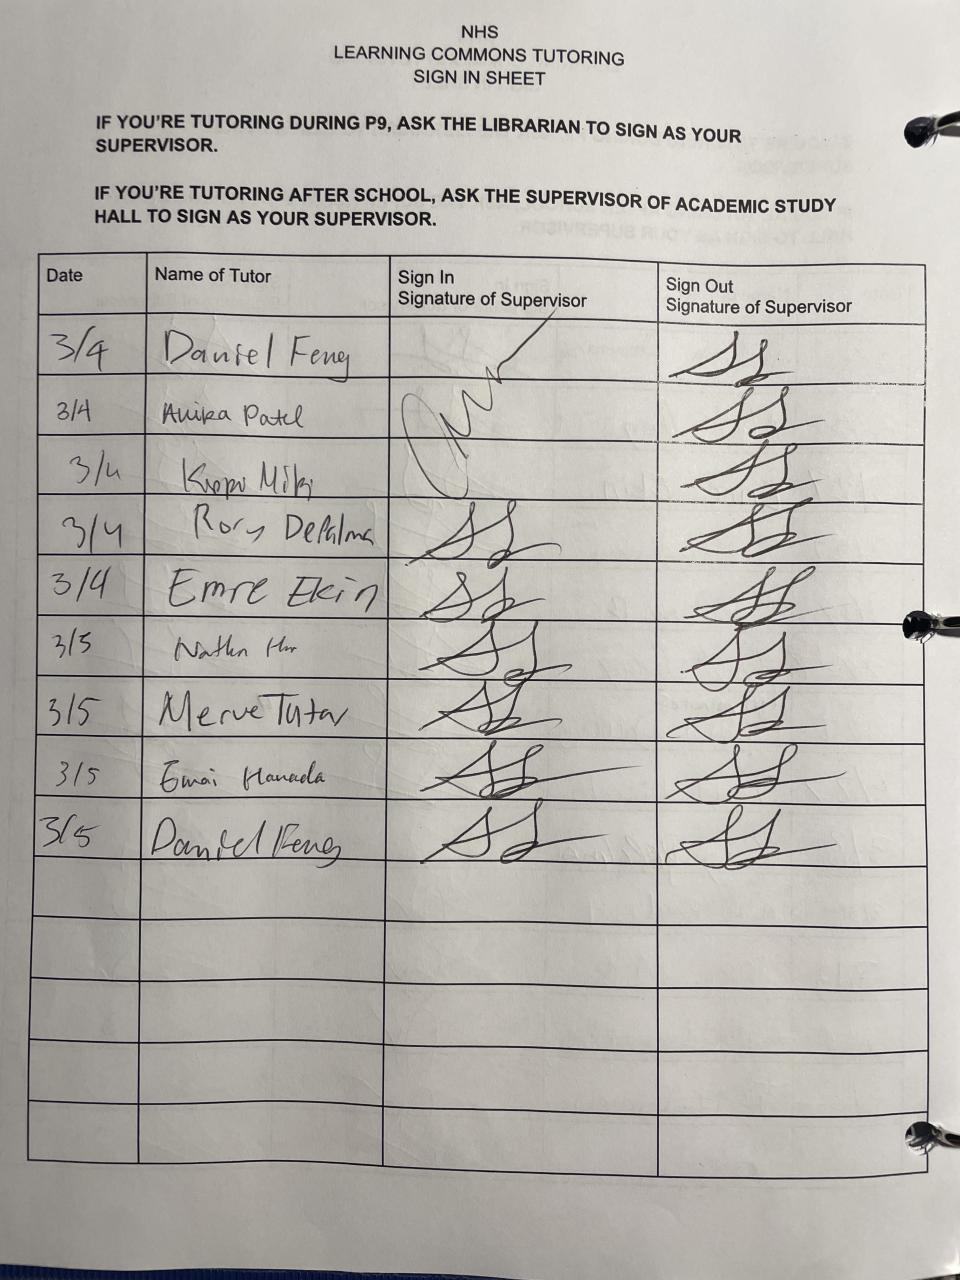 NHS
LEARNING COMMONS TUTORING
SIGN IN SHEET
IF YOU'RE TUTORING DURING P9, ASK THE LIBRARIAN TO SIGN AS YOUR
SUPERVISOR.
IF YOU'RE TUTORING AFTER SCHOOL, ASK THE SUPERVISOR OF ACADEMIC STUDY
HALL TO SIGN AS YOUR SUPERVISOR.
Date Name of Tutor Sign In Signature of Supervisor Sign Out Signature of Supervisor
3/4 Daniel Feng
3/4 Anika Patel
3/4
3/4 Rory DePalma
3/4 Emre Ekin
3/5
3/5 Merve Tutar
3/5 Hanada
3/5 Daniel Feng